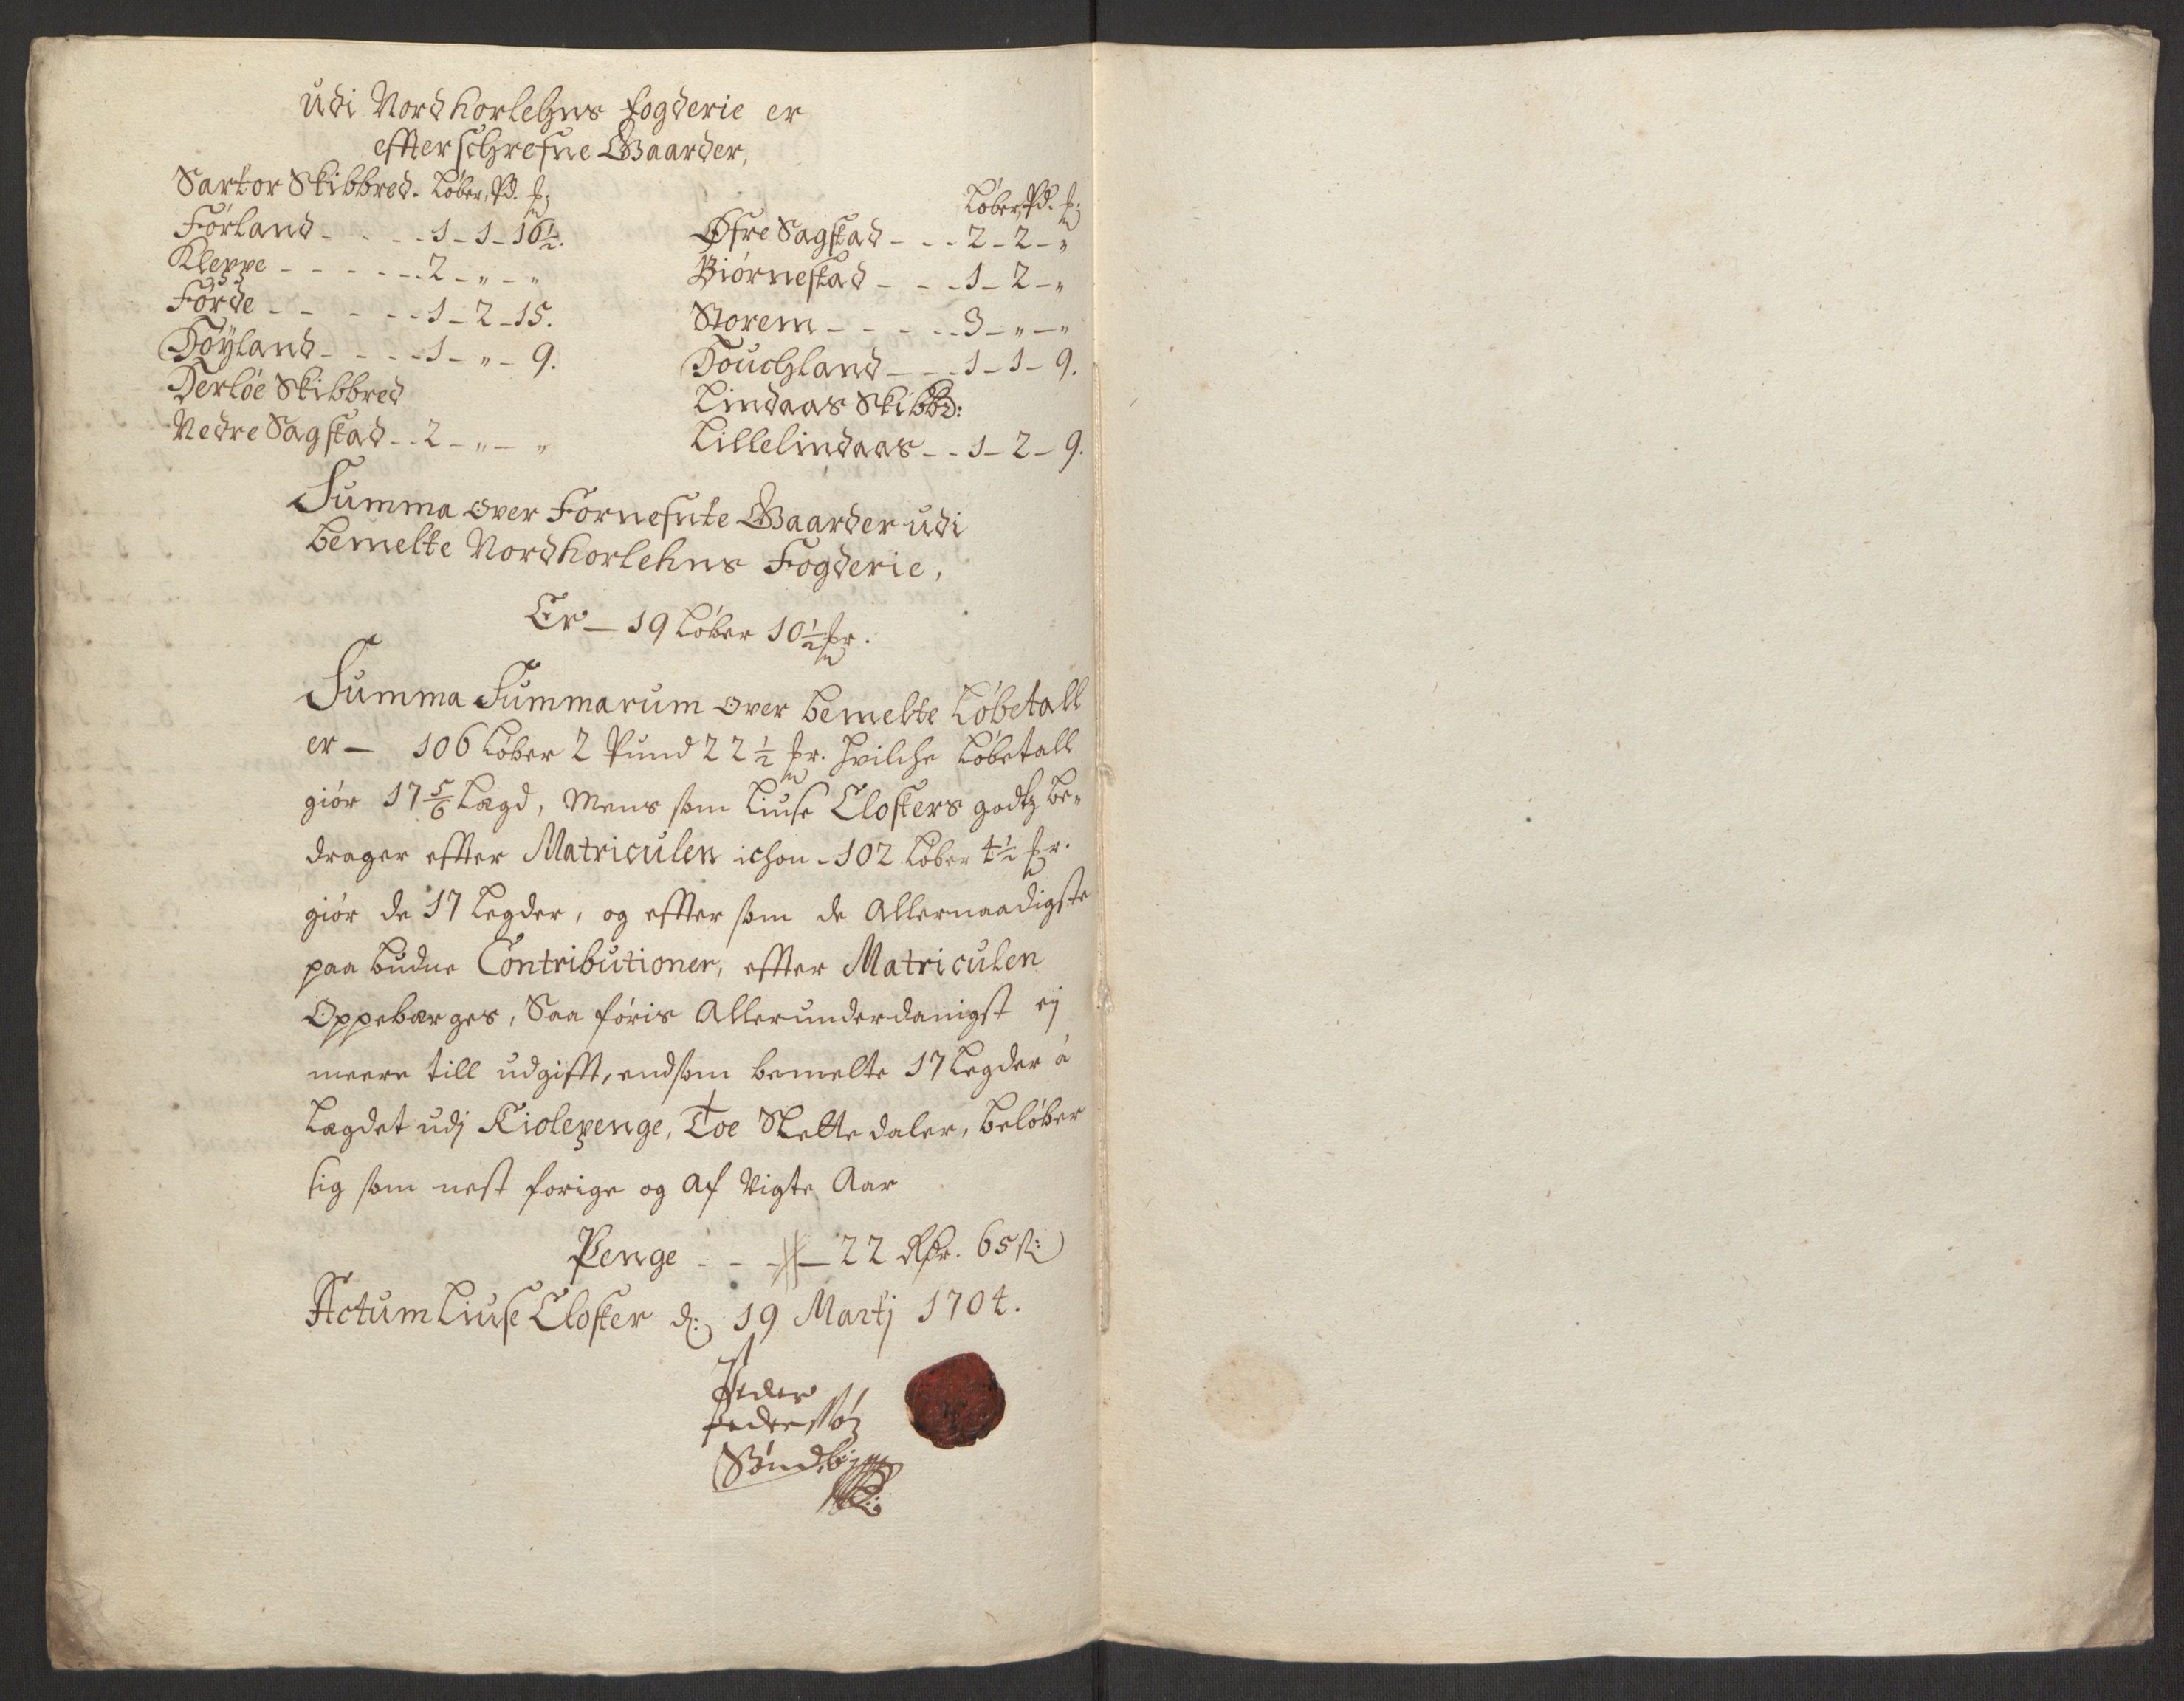 Udi Nordhorlehns fogderie er
effterschrefne Gaarder,
Sartor Skibbred. Løber, Pd.
Førland - - - - 1 - 1 - 16½.
Kleppe - - - - - 2 - " - "
Førde - - - - - 1 - 2 - 15.
Tøyland - - - - 1 - " - 9.
Herløe Skibbred
Nedre Sagstad - - 2 - " - "
Løber, Pd.
Øfre Sagstad - - - 2 - 2 - "
Biørnestad - - - 1 - 2 - "
Storem - - - - - 3 - " - "
Touchland - - - 1 - 1 - 9.
Lindaas Skibbd:
Lillelindaas - - 1 - 2 - 9.
Summa over Fornefnte Gaarder udi
bemelte Nordhorlehns Fogderie,
Er — 19 Løber 10½ mr.
Summa Summarum over bemelte Løbetall
er — 106 Løber 2 Pund 22½ mr. hvilche Løbetall
giør 17 5/6 Lægd, Mens som Liuse Closters godtz be-
drager effter Matriculen ichon - 102 Løber 4½ mr.
giør de 17 Legder, og effter som de Allernaadigste
paa budne Contributioner, effter Matriculen
Oppebærges, Saa føris Allerunderdanigst ej
meere till udgifft, end som bemelte 17 Legder á
Lægdet udj Kiolepenge, Toe Slette daler, beløber
sig som nest forige og af vigte Aar
Penge - - - 22 Rdr. 65 s:
Actum Liuse Closter d: 19 Martj 1704.
Peder
Pedersøn